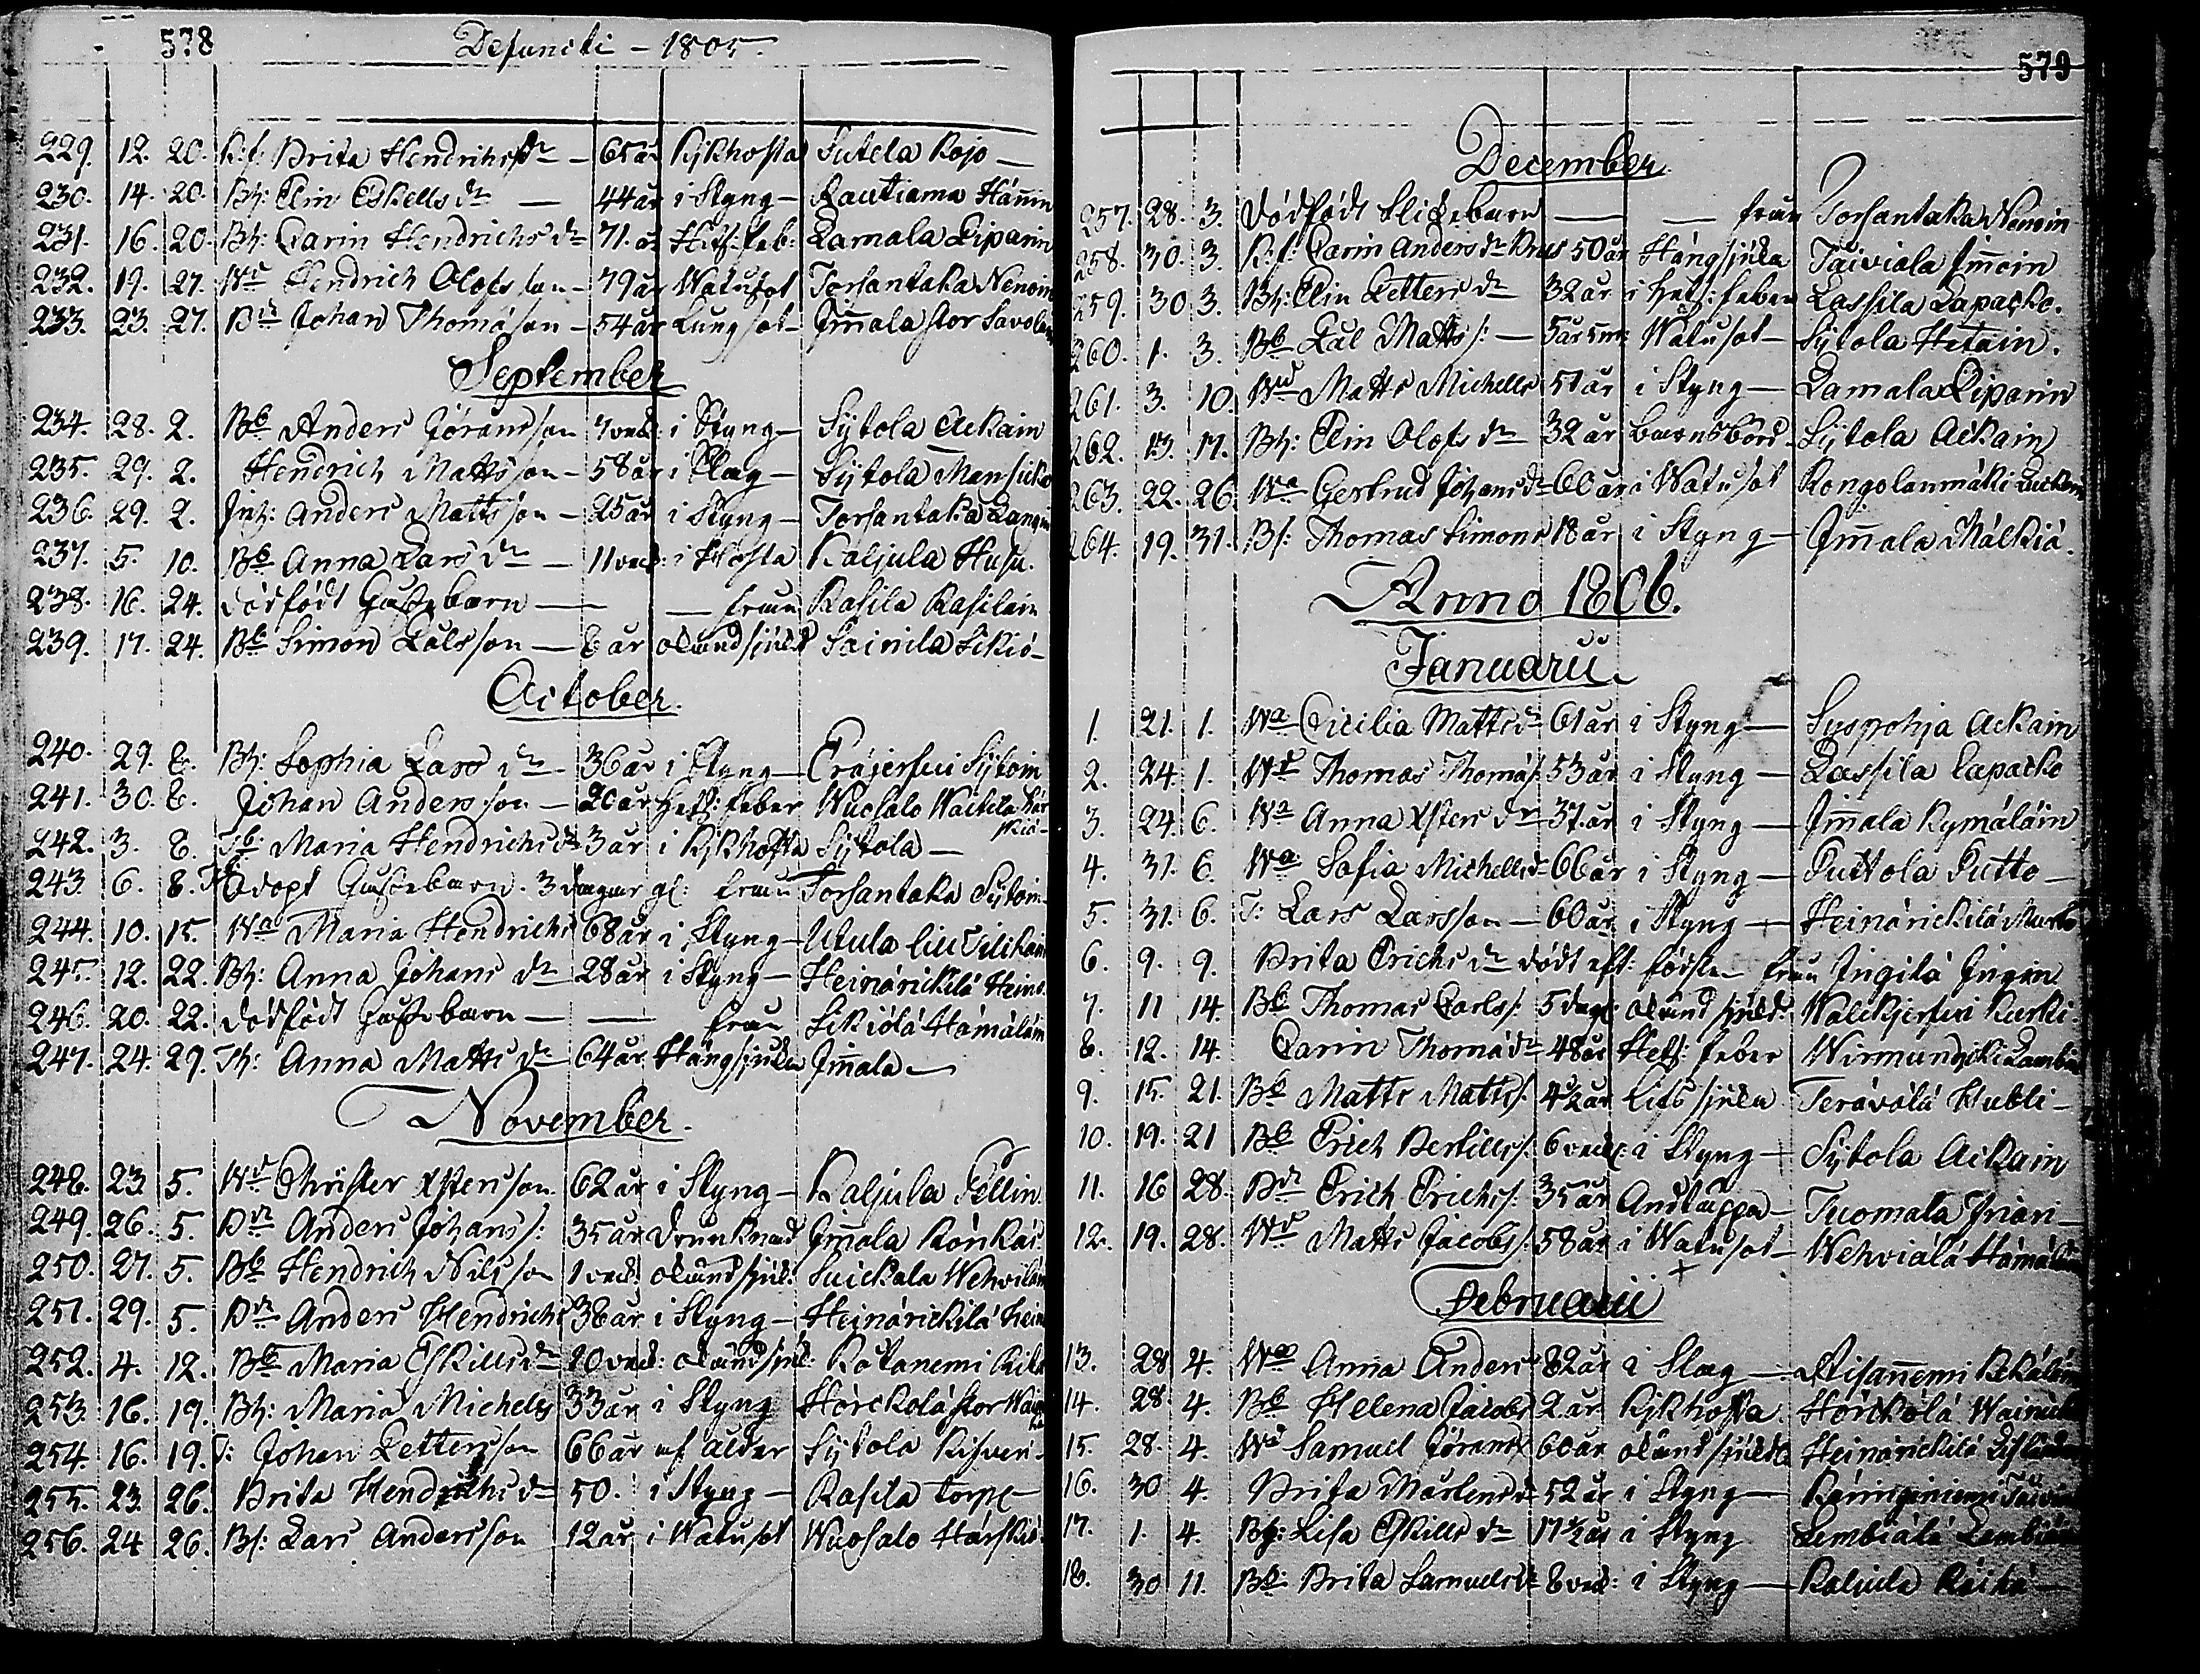 578 Defuncti - 1805.
229. 12. 20. B:f: Brita Hendrichsdr - 65 år Kjkhosta Sutela Kojo -
230. 14. 20. Bh: Elin Eskells dr - 44 år i Styng - Rautiama Hänin
231. 16. 20. Bh: Carin Hendrichs dr 71. år Hets: feb: Lamala Liparin
232. 19. 27. Wr Hendrich Olofs son - 79 år Watusot Torsantaka Nenoin
233. 23. 27. Bd Johan Thomason - 54 år Lungsot - Im̄ala stor Savolain
September
234. 28. 2. Bb Anders Göransson 7 veck: i Styng - Sijtola Ackain
235. 29. 2. Hendrich Mattsson - 58 år i Slag - Sijtola Mansicka
236. 29. 2. Inh: Anders Mattsson - 25 år i Styng - Torsantaka
237. 5. 10. Bb Anna Lars dr - 11 veck: i Hosta Kaljula Husu.
238. 16. 24. dödfödt Gossebarn - - från Rasila Rasilain
239. 17. 24. Bb Simon Pålsson - 8 år okänd sjukd Sainila Sikiö -
October.
240. 29. 8. Bh: Sophia Lars dr - 36 år i Styng - Eräjerfvi Sijtoin
241. 30. 8. Johan Andersson - 20 år Hets: feber Wuosalo
242. 3. 8. Sb: Maria Hendrichs dr 3 år i Kjkhosta Sijtola -
243. 6. 8. Gossebarn. 3 dagar gl: från Torsantaka Sijtoin
244. 10. 15. Wa Maria Hendrichs 68 år i Styng - Utula
245. 12. 22. Bh: Anna Johans dr - 28 år i Styng - Heinärickilä Hein
246. 20. 22. dödfödt Gossebarn - - från Sikiölä Hämäläin
247. 24. 29. Th: Anna Matts dr - 64 år Hängsjuka Im̄ala -
November.
248. 23. 5. Wr Christer Xtersson 62 år i Styng - Kaljula Pellin
249. 26. 5. Dr Anders Johans s: 35 år drunknad Im̄ala Rönkäs
250. 27. 5. Bb Hendrich Nilsson 1 veck: okänd sjuk: Suickala Wehviläi
251. 29. 5. Dr Anders Hendrichs 38 år i Styng - Heinärickilä Hein
252. 4. 12. Bb Maria Eskills dr 10 veck: okänd sjuk:
253. 16. 19. Bh: Maria Michels 33 år i Styng Härckölä stor
254. 16. 19. I: Johan Pettersson 66 år af ålder Sijtola
255. 23. 26. Brita Hendrichs dr 50. i Styng - Rasila torp -
256. 24 26. Bs: Lars Andersson 12 år i Watusot Wuosalo Härskiä
579
December
257. 28. 3. dödfödt flickebarn - - från Torsantaka Nenoin
258. 30. 3. B:f: Carin Anders dr 50 år Hängsjuka Täiviala Im̄oin
259. 30 3. Bh: Elin Petters dr 32 år i Hets: feber Lassila Lapacko.
260. 1. 3. Bb Pål Matts s: - 5 år Watusot - Sijtola Hitain.
261. 3. 10. Wd Matts Michells 51 år i Styng - Lamala Liparin
262. 13. 17. Bh: Elin Olofs dr 32 år barnsbörd - Sijtola Ackain
263. 22. 26. Wa Gertrud Johans dr 60 år i Watusot Kongolanmäki
264. 19. 31. Bs: Thomas Simons 18 år i Styng - Im̄ala Mälkiä.
Anno 1806.
Januarii
1. 21. 1. Wa Cicilia Matts dr 61 år i Styng - Suspohja Ackain
2. 24. 1. Wr Thomas Thomas: 53 år i Styng - Lassila Lapacko
3. 24. 6. Wa Anna Xters dr 37. år i Styng - Im̄ala Kymäläin
4. 31. 6. Wa Sofia Michells dr 66 år i Styng - Puttola Putto -
5. 31. 6. I: Lars Larsson - 60 år i Styng - Heinärickilä
6. 9. 9. Brita Erichs dr dödt eft: födslen från Ingilä Ingin
7. 11 14. Bb Thomas Carls s: 5 dag: okänd sjukd: Walckjerfvi
8. 12. 14. Carin Thoma dr 48 år Hets: feber
9. 15. 21. Bb Matts Matts s: 4½ år sjuka Terävälä Hubli -
10. 19. 21 Bb Erich Bertills s: 6 veck: i Styng - Sijtola Ackain
11. 16 28. Dr Erich Erichs s: 35 år Andtäppa - Tuomala
12. 19. 28. Wr Matts Jacobs s: 58 år i Watusot - Wehviälä Hämäläin
Februarii
13. 28 4. Wa Anna Anders 82 år i Slag -
14. 28 4. Bb Helena Jacobs 2 år Kjkhosta Härckölä
15. 28. 4. Wd Samuel Görans 60 år okänd sjukd Heinärickilä
16. 30 4. Brita Mårtens dr 52 år i Styng -
17. 1. 4. Bh: Lisa Eskills dr 17½ år i Styng Lembiälä Lembiäin
18. 30 11. Bb: Brita Samuels dr 8 veck: i Styng - Kaljula